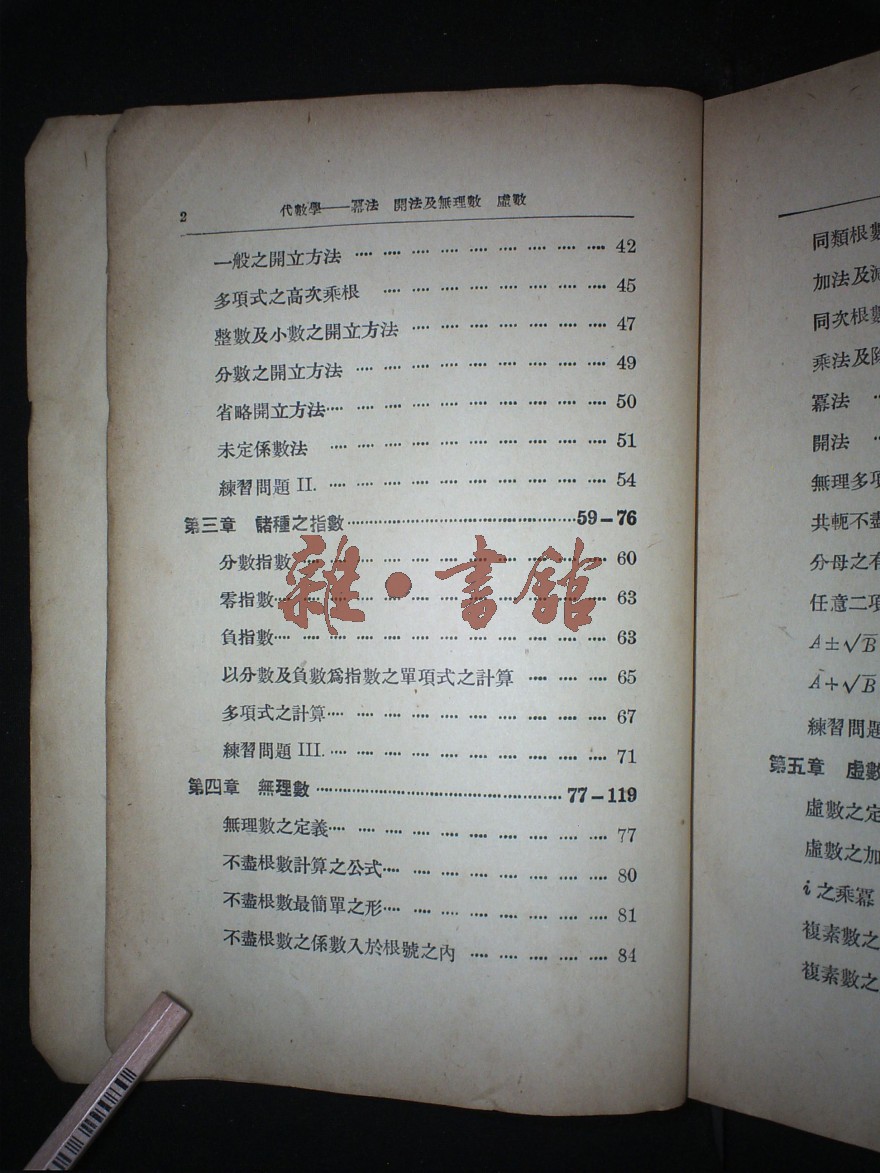 2 代數學——冪法 開法及無理數 虛數
一般之開立方法 ···· ···· ···· ···· ···· ···· ···· ···· ···· 42
多項式之高次乘根 ···· ···· ···· ···· ···· ···· ···· ···· 45
整數及小數之開立方法 ···· ···· ···· ···· ···· ···· ···· 47
分數之開立方法 ···· ···· ···· ···· ···· ···· ···· ···· ···· 49
省略開立方法···· ···· ···· ···· ···· ···· ···· ···· ···· ···· 50
未定係數法 ···· ···· ···· ···· ···· ···· ···· ···· ···· ···· 51
練習問題 II. ···· ···· ···· ···· ···· ···· ···· ···· ···· ···· 54
第三章 諸種之指數····················································59–76
分數指數···· ···· ···· ···· ···· ···· ···· ···· ···· ···· ···· 60
零指數···· ···· ···· ···· ···· ···· ···· ···· ···· ···· ···· ···· 63
負指數···· ···· ···· ···· ···· ···· ···· ···· ···· ···· ···· ···· 63
以分數及負數爲指數之單項式之計算 ···· ···· ···· 65
多項式之計算···· ···· ···· ···· ···· ···· ···· ···· ···· ···· 67
練習問題 III. ···· ···· ···· ···· ···· ···· ···· ···· ···· ···· 71
第四章 無理數 ························································ 77–119
無理數之定義···· ···· ···· ···· ···· ···· ···· ···· ···· ···· 77
不盡根數計算之公式···· ···· ···· ···· ···· ···· ···· ···· 80
不盡根數最簡單之形···· ···· ···· ···· ···· ···· ···· ···· 81
不盡根數之係數入於根號之內 ···· ···· ···· ···· ···· 84
雜·書館
同類根數
加法及減
同次根數
乘法及除
冪法
開法
無理多項
共軛不盡
分母之有
任意二項
A±√B
A+√B
練習問題
第五章 虛數
虛數之定
虛數之加
i 之乘冪
複素數之
複素數之